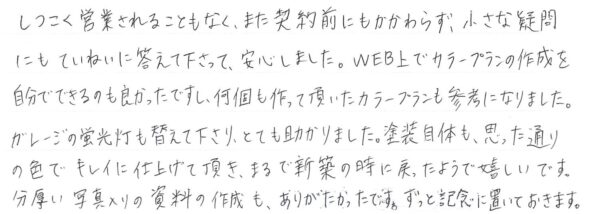 しつこく営業されることもなく、また契約前にもかかわらず、小さな疑問
にもていねいに答えて下さって、安心しました。WEB上でカラープランの作成を
自分でできるのも良かったですし、何個も作って頂いたカラープランも参考になりました。
ガレージの蛍光灯も替えて下さり、とても助かりました。塗装自体も、思った通り
の色でキレイに仕上げて頂き、まるで新築の時に戻ったようで嬉しいです。
分厚い写真入りの資料の作成も、ありがたかったです。ずっと記念に置いておきます。